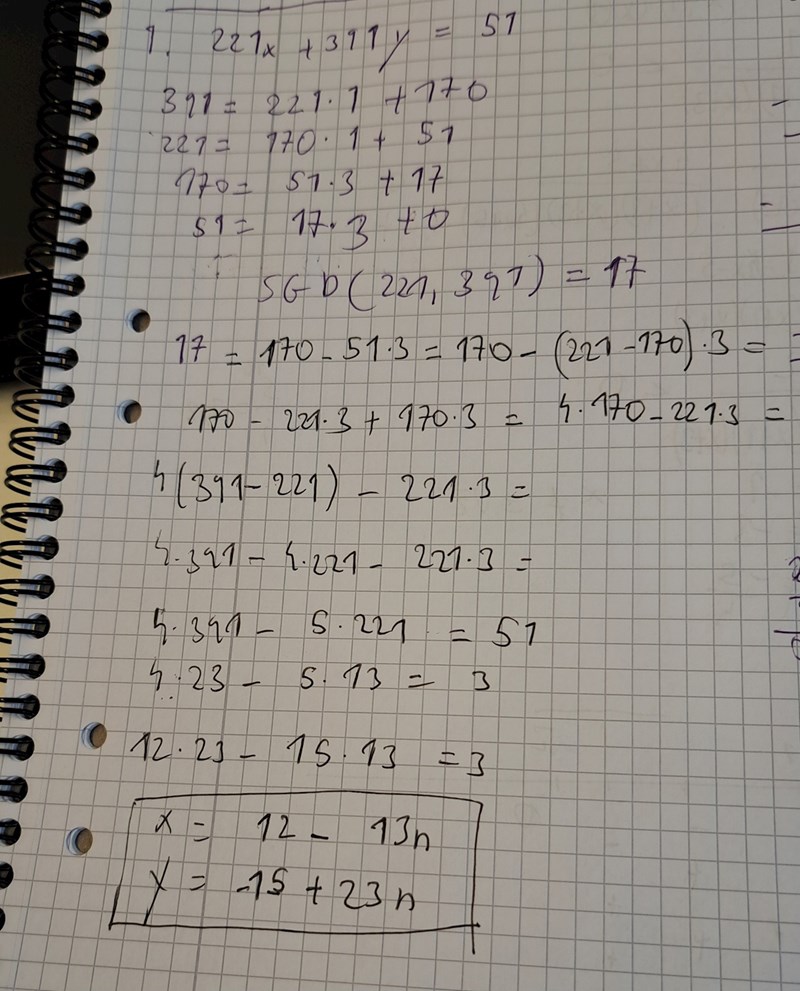 1. 221x + 391y = 51
391 = 221·1 + 170
221 = 170·1 + 51
170 = 51·3 + 17
51 = 17·3 + 0
SGD(221, 391) = 17
17 = 170 - 51·3 = 170 - (221 - 170)·3 =
170 - 221·3 + 170·3 = 4·170 - 221·3 =
4(391 - 221) - 221·3 =
4·391 - 4·221 - 221·3 =
4·391 - 5·221 = 51
4·23 - 5·13 = 3
12·23 - 15·13 = 3
x = 12 - 13n
y = -15 + 23n